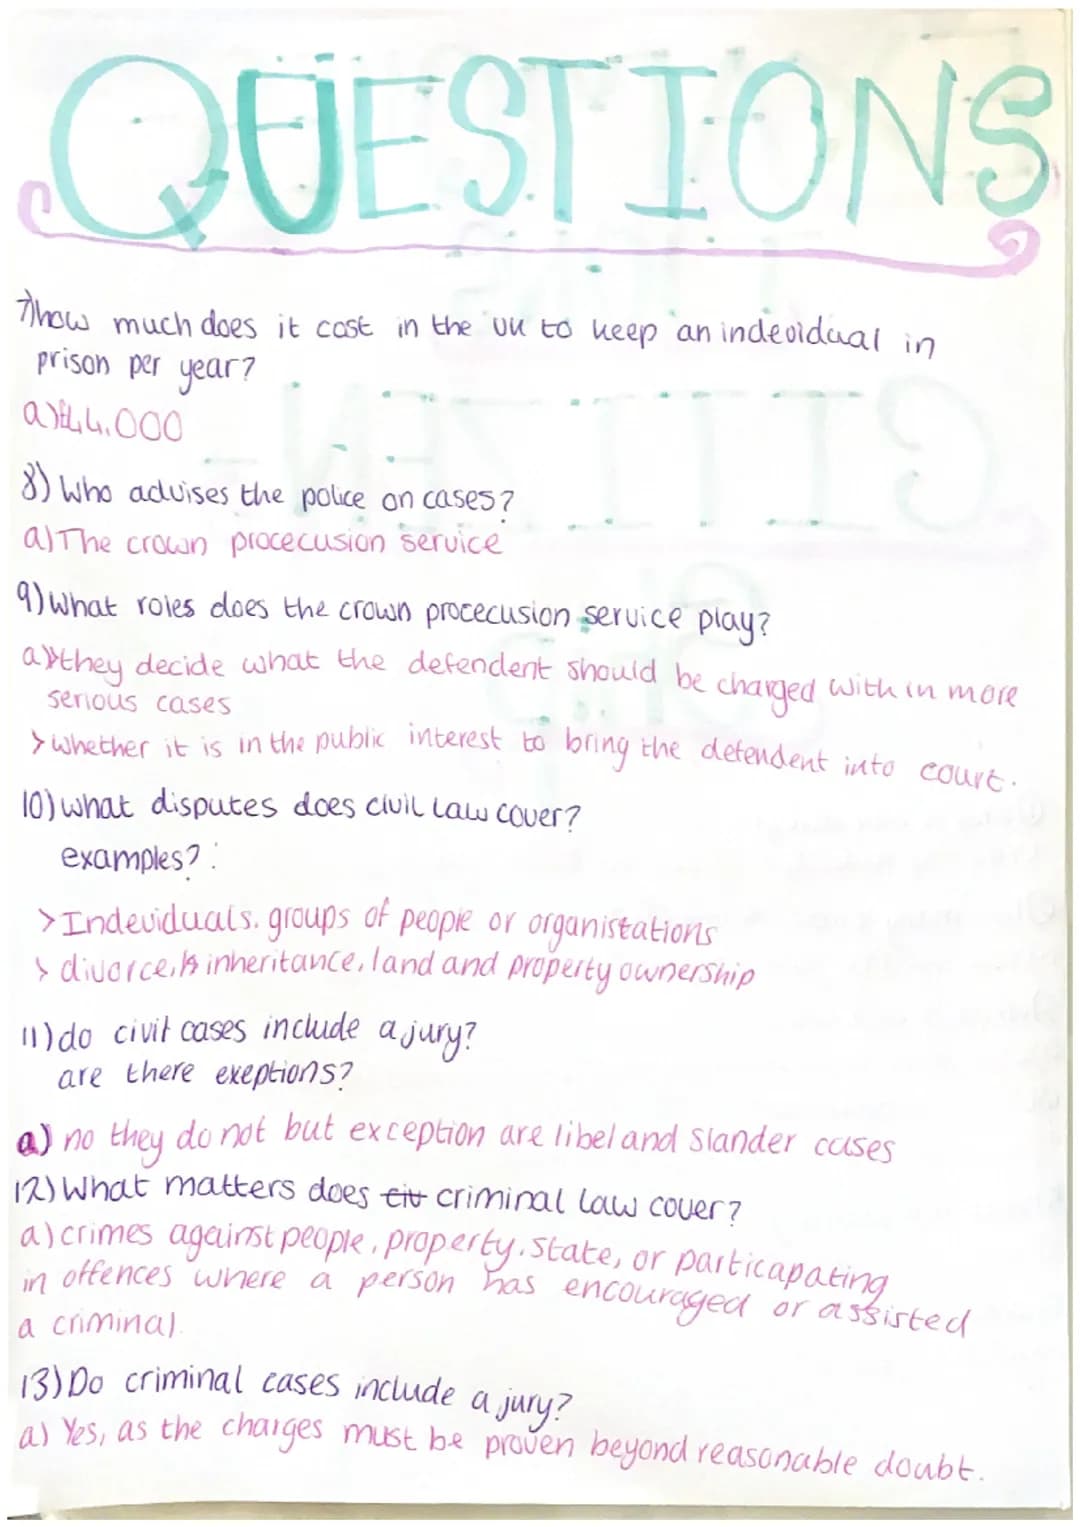 QUESTIONS
7)how much does it cost in the UK to keep an indevidual in
prison per year?
a)£44,000
8) Who advises the police on cases?
a)The crown procecusion service
9)What roles does the crown procecusion service play?
a)>they decide what the defendent should be charged with in more
serious cases
>whether it is in the public interest to bring the defendent into court.
10)what disputes does civil law cover?
examples?:
>Indeviduals, groups of people or organistations
> divorce, inheritance, land and property ownership
11)do civil cases include a jury?
are there exeptions?
a) no they do not but exception are libel and slander cases
12)What matters does civ criminal law cover?
a)crimes against people, property, state, or particapating
in offences where a person has encouraged or assisted
a criminal.
13)Do criminal cases include a jury?
a) Yes, as the charges must be proven beyond reasonable doubt.